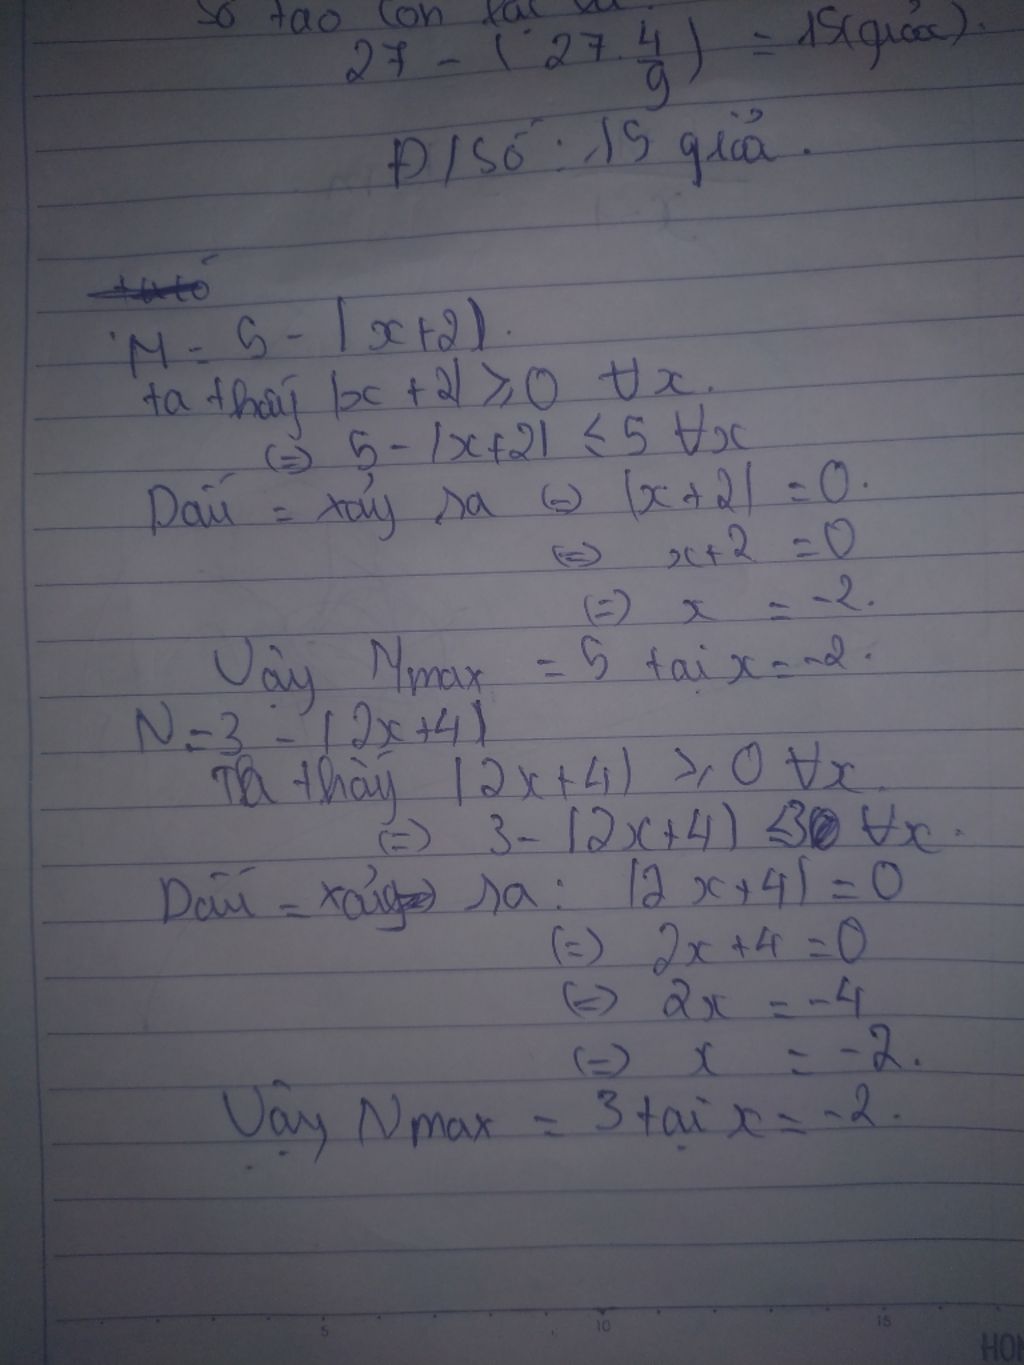 số táo còn lại là:
27 - ( 27. 4/9 ) = 15(quả).
Đ/số: 15 quả.
M = 5 - |x+2|.
ta thấy |x+2| ≥ 0 ∀x.
(=) 5 - |x+2| ≤ 5 ∀x
Dấu = xảy ra (=) |x+2| = 0.
(=) x+2 = 0
(=) x = -2.
Vậy Mmax = 5 tại x = -2.
N = 3 - |2x+4|
Ta thấy |2x+4| ≥ 0 ∀x.
(=) 3 - |2x+4| ≤ 3 ∀x.
Dấu = xảy ra: |2x+4| = 0
(=) 2x+4 = 0
(=) 2x = -4
(=) x = -2.
Vậy Nmax = 3 tại x = -2.
5 10 15